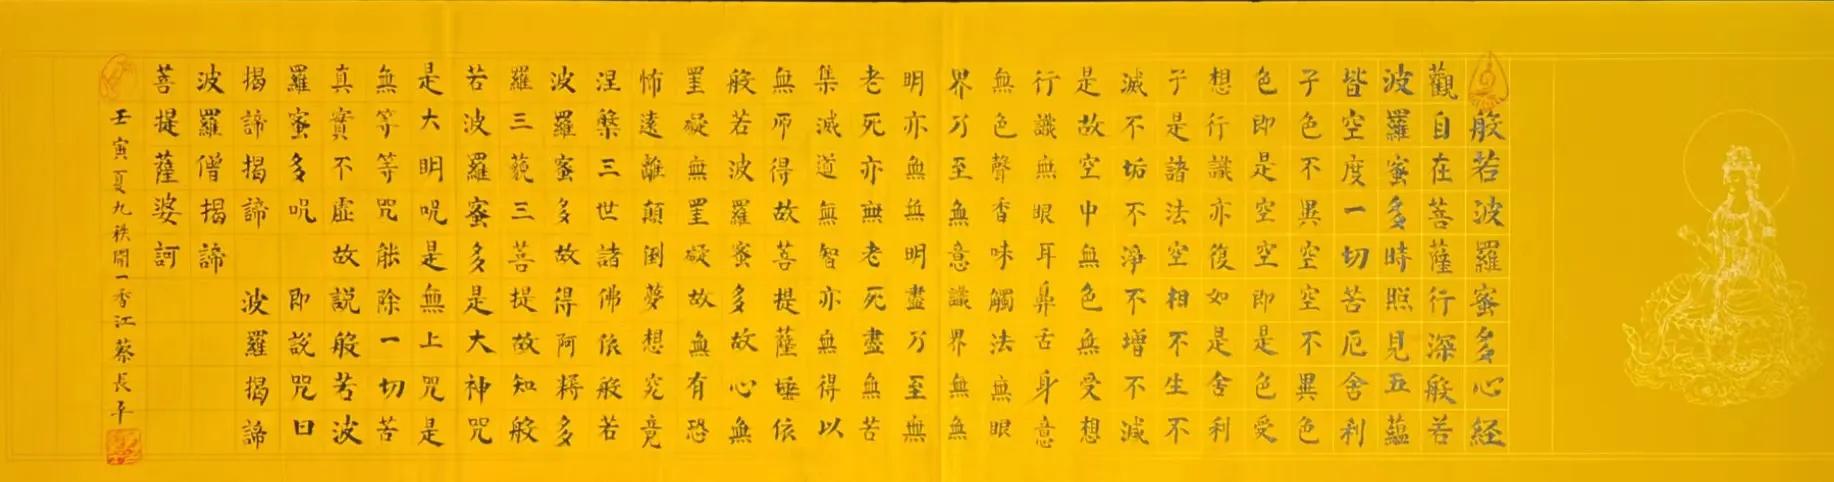 般若波羅蜜多心経
觀自在菩薩行深般若
波羅蜜多時照見五蘊
皆空度一切苦厄舍利
子色不異空空不異色
色即是空空即是色受
想行識亦復如是舍利
子是諸法空相不生不
滅不垢不淨不增不減
是故空中無色無受想
行識無眼耳鼻舌身意
無色聲香味觸法無眼
界乃至無意識界無無
明亦無無明盡乃至無
老死亦無老死盡無苦
集滅道無智亦無得以
無所得故菩提薩埵依
般若波羅蜜多故心無
罣礙無罣礙故無有恐
怖遠離顛倒夢想究竟
涅槃三世諸佛依般若
波羅蜜多故得阿耨多
羅三藐三菩提故知般
若波羅蜜多是大神咒
是大明呪是無上咒是
無等等咒能除一切苦
真實不虛故說般若波
羅蜜多呪即說咒曰
揭諦揭諦 波羅揭諦
波羅僧揭諦
菩提薩婆訶
壬寅夏九秩開一香江蔡長平